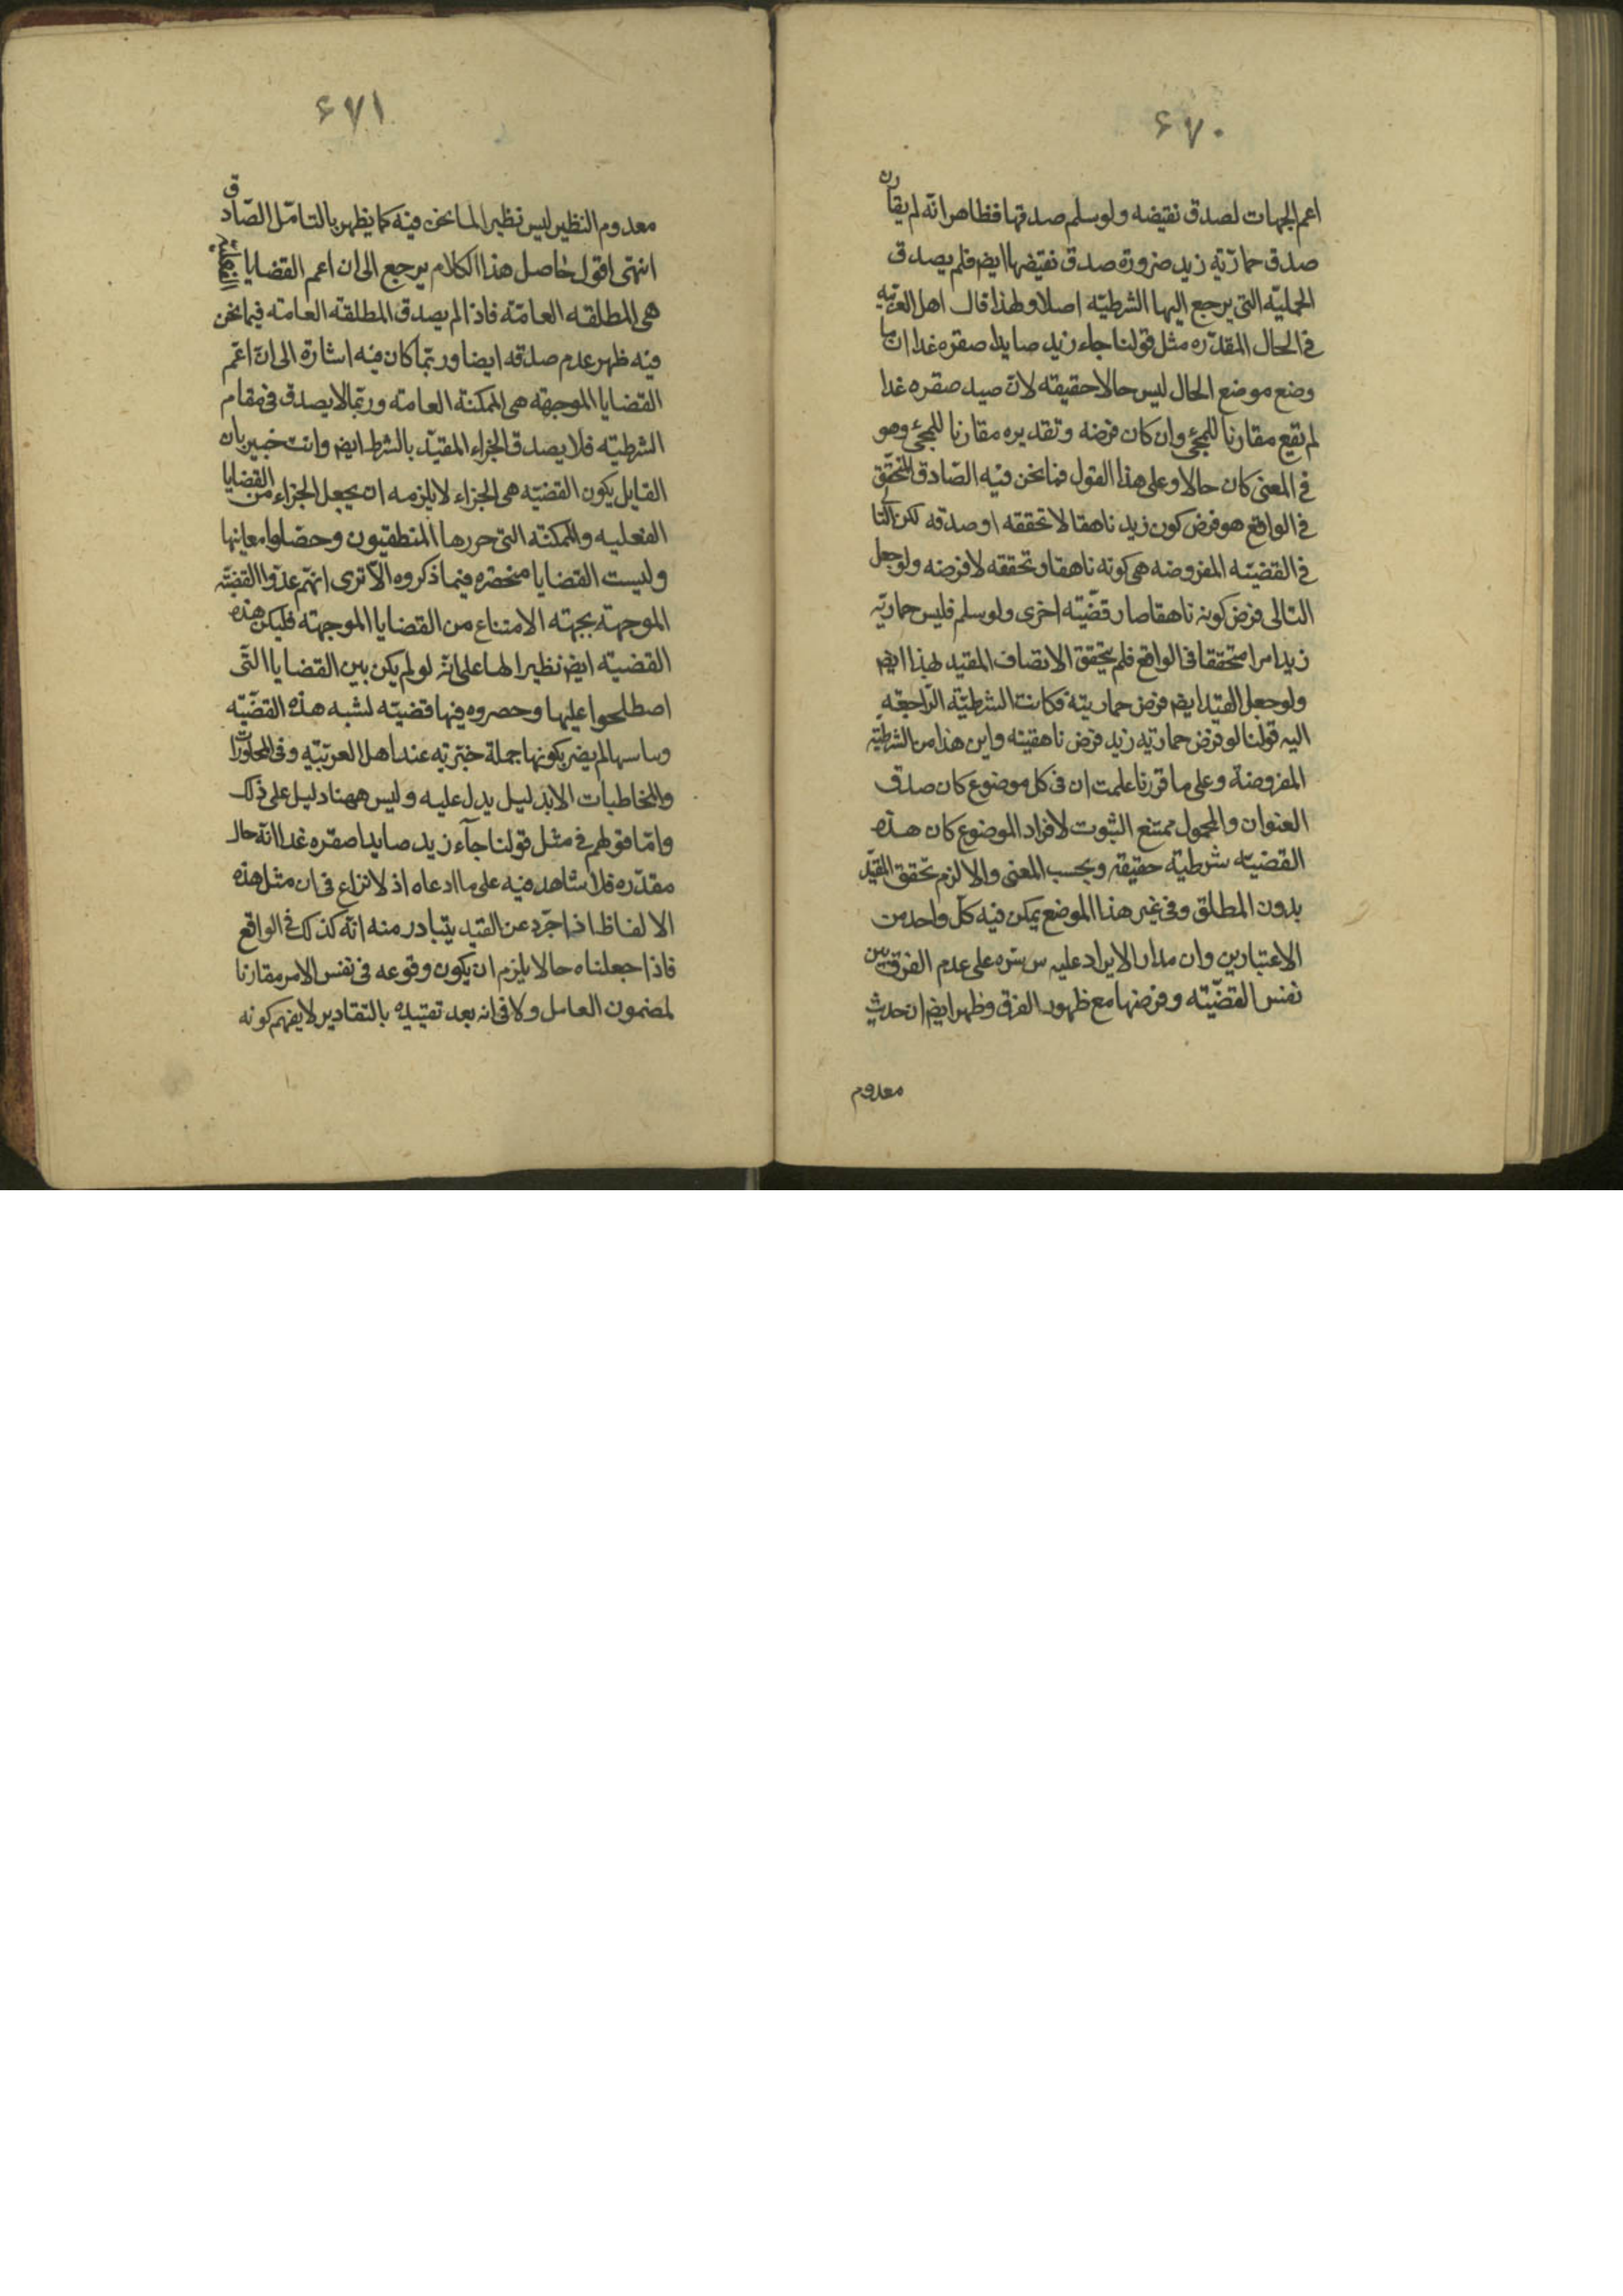 ۶۷۰
اعم الجهات لصدق نقيضه ولو سلم صدقها فظاهر انه لم يقارن
صدق حمارية زيد ضرورة صدق نقيضها ايضم فلم يصدق
الحملية التى يرجع اليها الشرطية اصلا ولهذا قال اهل العربية
فى الحال المقدره مثل قولنا جاء زيد صايدا صقره غدا ان ما
وضع موضع الحال ليس حالا حقيقه لان صيد صقره غدا
لم يقع مقارنا للمجئ وان كان فرضه وتقديره مقارنا للمجئ وهو
فى المعنى كان حالا وعلى هذا القول فما نحن فيه الصادق المتحقق
فى الواقع هو فرض كون زيد ناهقا لا تحققه او صدقه لكن التالى
فى القضيه المفروضه هى كونه ناهقا وتحققه لا فرضه ولو جعل
التالى فرض كونه ناهقا صار قضيته اخرى ولو سلم فليس حمارية
زيد امرا متحققا فى الواقع فلم يتحقق الاتصاف المقيد بهذا ايضم
ولو جعل القيد ايضم فرض حماريته فكانت الشرطية الراجعة
اليه قولنا لو فرض حمارية زيد فرض ناهقيته واين هذا من الشرطية
المفروضة وعلى ما قررنا علمت ان فى كل موضوع كان صدق
العنوان والمحمول ممتنع الثبوت لافراد الموضوع كان هذه
القضيه شرطية حقيقه وبحسب المعنى والا لزم تحقق المقيد
بدون المطلق وفى غير هذا الموضع يمكن فيه كل واحد من
الاعتبارين وان مدار الايراد عليه س سره على عدم الفرق بين
نفس القضيته وفرضها مع ظهور الفرق وظهر ايضم ان حديث
معدوم
۶۷۱
معدوم النظير ليس نظير الما نحن فيه كما يظهر بالتامل الصادق
انتهى اقول حاصل هذا الكلام يرجع الى ان اعم القضايا الفعلية
هى المطلقه العامة فاذا لم يصدق المطلقه العامة فيما نحن
فيه ظهر عدم صدقه ايضا وربما كان فيه اشارة الى ان اعم
القضايا الموجهة هى الممكنة العامة وربما لا يصدق فى مقام
الشرطيه فلا يصدق الجزاء المقيد بالشرط ايضم وانت خبير بان
القايل بكون القضيه هى الجزاء لا يلزمه ان يجعل الجزاء من القضايا
الفعليه والممكنة التى حررها المنطقيون وحصلوا معانيها
وليست القضايا منحصره فيما ذكروه الا ترى انهم عدوا القضية
الموجهة بجهته الامتناع من القضايا الموجهة فليكن هذه
القضيه ايضم نظيرا لها على انه لو لم يكن بين القضايا التى
اصطلحوا عليها وحصروه فيها قضيته لشبه هذه القضيه
وساسها لم يضر بكونها جملة خبرية عند اهل العربية وفى المحاورات
والمخاطبات الا بدليل يدل عليه وليس ههنا دليل على ذلك
واما قولهم فى مثل قولنا جاء زيد صايدا صقره غدا انه حال
مقدره فلا شاهد فيه على ما ادعاه اذ لا نزاع فى ان مثل هذه
الالفاظ اذا جرد عن القيد يتبادر منه انه كذلك فى الواقع
فاذا جعلناه حالا يلزم ان يكون وقوعه فى نفس الامر مقارنا
لمضمون العامل ولا فى انه بعد تقييده بالتقادير لا يفهم كونه